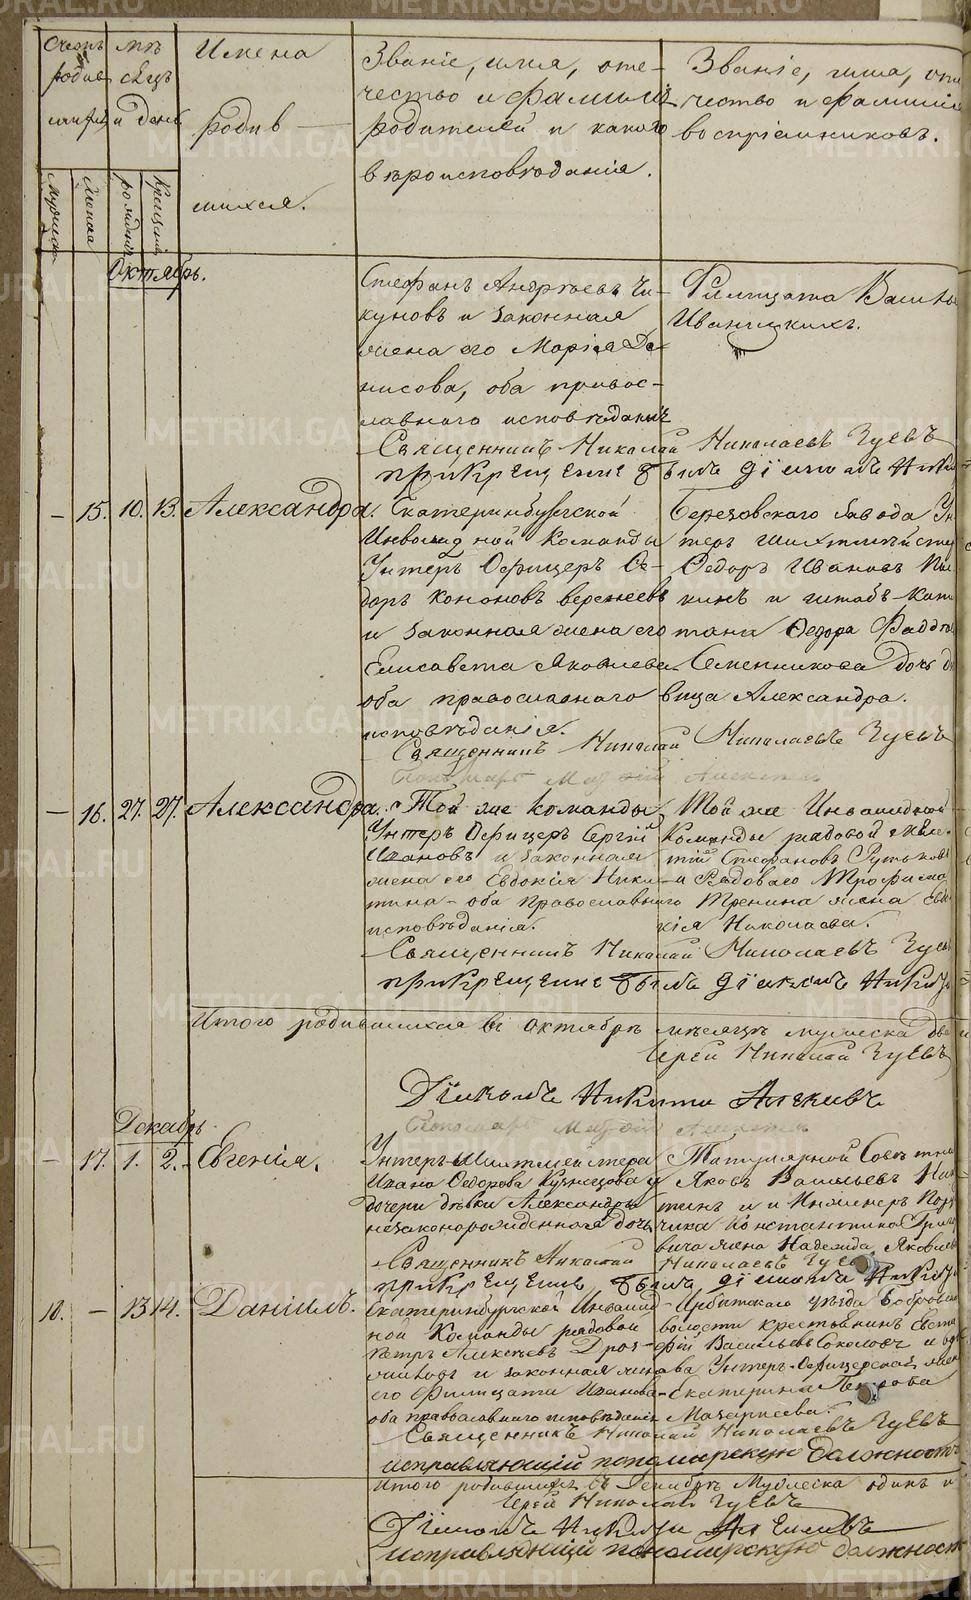 Счетъ родив шихся
Мѣ сяцъ и день
Имена родив — шихся.
Званіе, имя, оте- чество и фамилія родителей и какого вѣроисповѣданія.
Званіе, имя, оте чество и фамилія воспріемниковъ.
Мужска
Женска
рожденія
Крещенія
Октябрь.
Стефанъ Андреевъ Чи-
куновъ и законная
жена его Марія Де
нисова, оба правос-
лавнаго исповѣданія
Васильева
Иваницкихъ.
Священникъ Николай Николаевъ Зуевъ
при Крещеніе былъ діаконъ Ники
— 15. 10. 13. Александра.
Екатеринбургской
Инвалидной Команды
Унтеръ Офицеръ Ѳе-
доръ Кононовъ
и законная жена его
Елисавета Яковлева
оба православнаго
исповѣданія.
Березовскаго завода Ун
теръ Шихтмейстер
Ѳедоръ Ивановъ
кинъ и штабъ-Капи
тана Ѳедора Фаддѣ
Семенникова дочь дѣ
вица Александра.
Священникъ Николай Николаевъ Зуевъ
Пономарь Алексѣевъ
— 16. 27. 27. Александра.
Той же Команды
Унтеръ Офицеръ Сергій
Ивановъ и законная
жена его Евдокія Ники-
тина - оба Православнаго
исповѣданія.
Той же Инвалидной
Команды рядовой
Стефановъ
и Рядоваго Трофима
Тренина жена Евдо
кія Николаева.
Священникъ Николай Николаевъ Зуевъ
при Крещеніе былъ діаконъ Никита
Итого родившихся въ Октябрѣ мѣсяцѣ мужеска два
Іерей Николай Зуевъ
Діаконъ Никита
Пономарь Алексѣевъ
Декабрь
— 17. 1. 2. Евгенія.
Унтеръ-Шихтмейстера
Ивана Ѳедорова Кузнецова
дочери дѣвки Александры
незаконорожденная дочь
Титулярной Совѣтни
Яковъ Васильевъ
и Инженеръ Пору
чика Константина Григ
вича жена Надежда Яковлев
Священникъ Николай Николаевъ Зуевъ
при Крещеніе былъ діаконъ Никита
10. — 13 14. Даніилъ.
Екатеринбургской Инвалид-
ной Команды рядовой
Петръ Алексѣевъ Дроз-
и законная жена
его Филицата Иванова
оба православнаго исповѣданія
Ирбитскаго уѣзда Бобровской
волости крестьянинъ Евста
фій Васильевъ Соколовъ и вдо
ва Унтеръ-Офицерская жена
Екатерина Петрова
Священникъ Николай Николаевъ Зуевъ
исправляющій пономарскую должность
Итого родившихся въ Декабрѣ Мужеска одинъ и
Іерей Николай Зуевъ
Діаконъ Никита
исправляющій пономарскую должность
METRIKI.GASO-URAL.RU